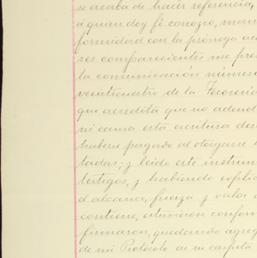 se acaba de hacer referencia,
a quien doy fé conozco, mani
formidad con la prórroga ac
res comparecientes me pre
la comunicación número
veinticuatro de la Tesorería
que acredita que no adeud
ni causa esta escritura de
haberse pagado al otorgarse
tadas; y leído este instrum
testigos, y habiendo explic
el alcance, fuerza y valor
contiene, estuvieron conform
firmaron, quedando agreg
de mi Protocolo en su carpeta